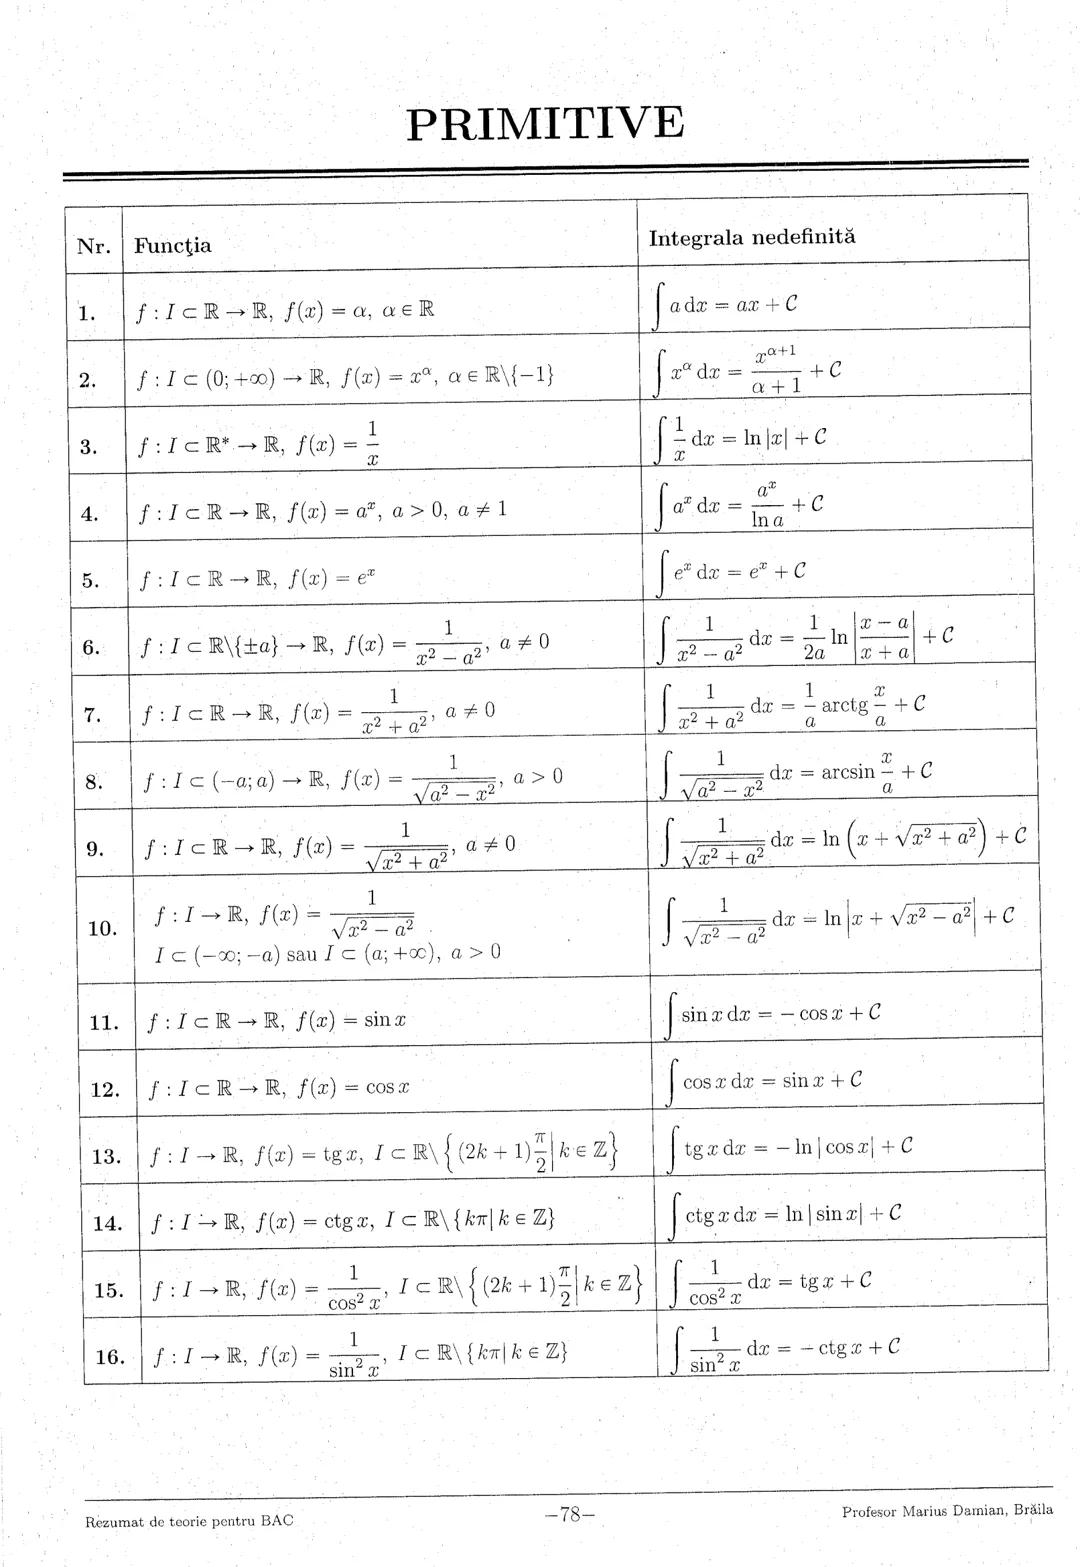 PRIMITIVE
Nr. Funcţia Integrala nedefinită
1. f : I ⊂ ℝ → ℝ, f(x) = α, α ∈ ℝ ∫ a dx = ax + C
2. f : I ⊂ (0; +∞) → ℝ, f(x) = x^α, α ∈ ℝ\{−1} ∫ x^α dx = x^(α+1)/(α + 1) + C
3. f : I ⊂ ℝ* → ℝ, f(x) = 1/x ∫ 1/x dx = ln|x| + C
4. f : I ⊂ ℝ → ℝ, f(x) = a^x, a > 0, a ≠ 1 ∫ a^x dx = a^x/ln a + C
5. f : I ⊂ ℝ → ℝ, f(x) = e^x ∫ e^x dx = e^x + C
6. f : I ⊂ ℝ\{±a} → ℝ, f(x) = 1/(x² − a²), a ≠ 0 ∫ 1/(x² − a²) dx = 1/(2a) ln |(x − a)/(x + a)| + C
7. f : I ⊂ ℝ → ℝ, f(x) = 1/(x² + a²), a ≠ 0 ∫ 1/(x² + a²) dx = 1/a arctg x/a + C
8. f : I ⊂ (−a; a) → ℝ, f(x) = 1/√(a² − x²), a > 0 ∫ 1/√(a² − x²) dx = arcsin x/a + C
9. f : I ⊂ ℝ → ℝ, f(x) = 1/√(x² + a²), a ≠ 0 ∫ 1/√(x² + a²) dx = ln (x + √(x² + a²)) + C
10. f : I → ℝ, f(x) = 1/√(x² − a²) ∫ 1/√(x² − a²) dx = ln |x + √(x² − a²)| + C
I ⊂ (−∞; −a) sau I ⊂ (a; +∞), a > 0
11. f : I ⊂ ℝ → ℝ, f(x) = sin x ∫ sin x dx = − cos x + C
12. f : I ⊂ ℝ → ℝ, f(x) = cos x ∫ cos x dx = sin x + C
13. f : I → ℝ, f(x) = tg x, I ⊂ ℝ\{(2k + 1)π/2 | k ∈ ℤ} ∫ tg x dx = − ln | cos x| + C
14. f : I → ℝ, f(x) = ctg x, I ⊂ ℝ\{kπ| k ∈ ℤ} ∫ ctg x dx = ln | sin x| + C
15. f : I → ℝ, f(x) = 1/cos² x, I ⊂ ℝ\{(2k + 1)π/2 | k ∈ ℤ} ∫ 1/cos² x dx = tg x + C
16. f : I → ℝ, f(x) = 1/sin² x, I ⊂ ℝ\{kπ| k ∈ ℤ} ∫ 1/sin² x dx = − ctg x + C
Rezumat de teorie pentru BAC −78− Profesor Marius Damian, Brăila